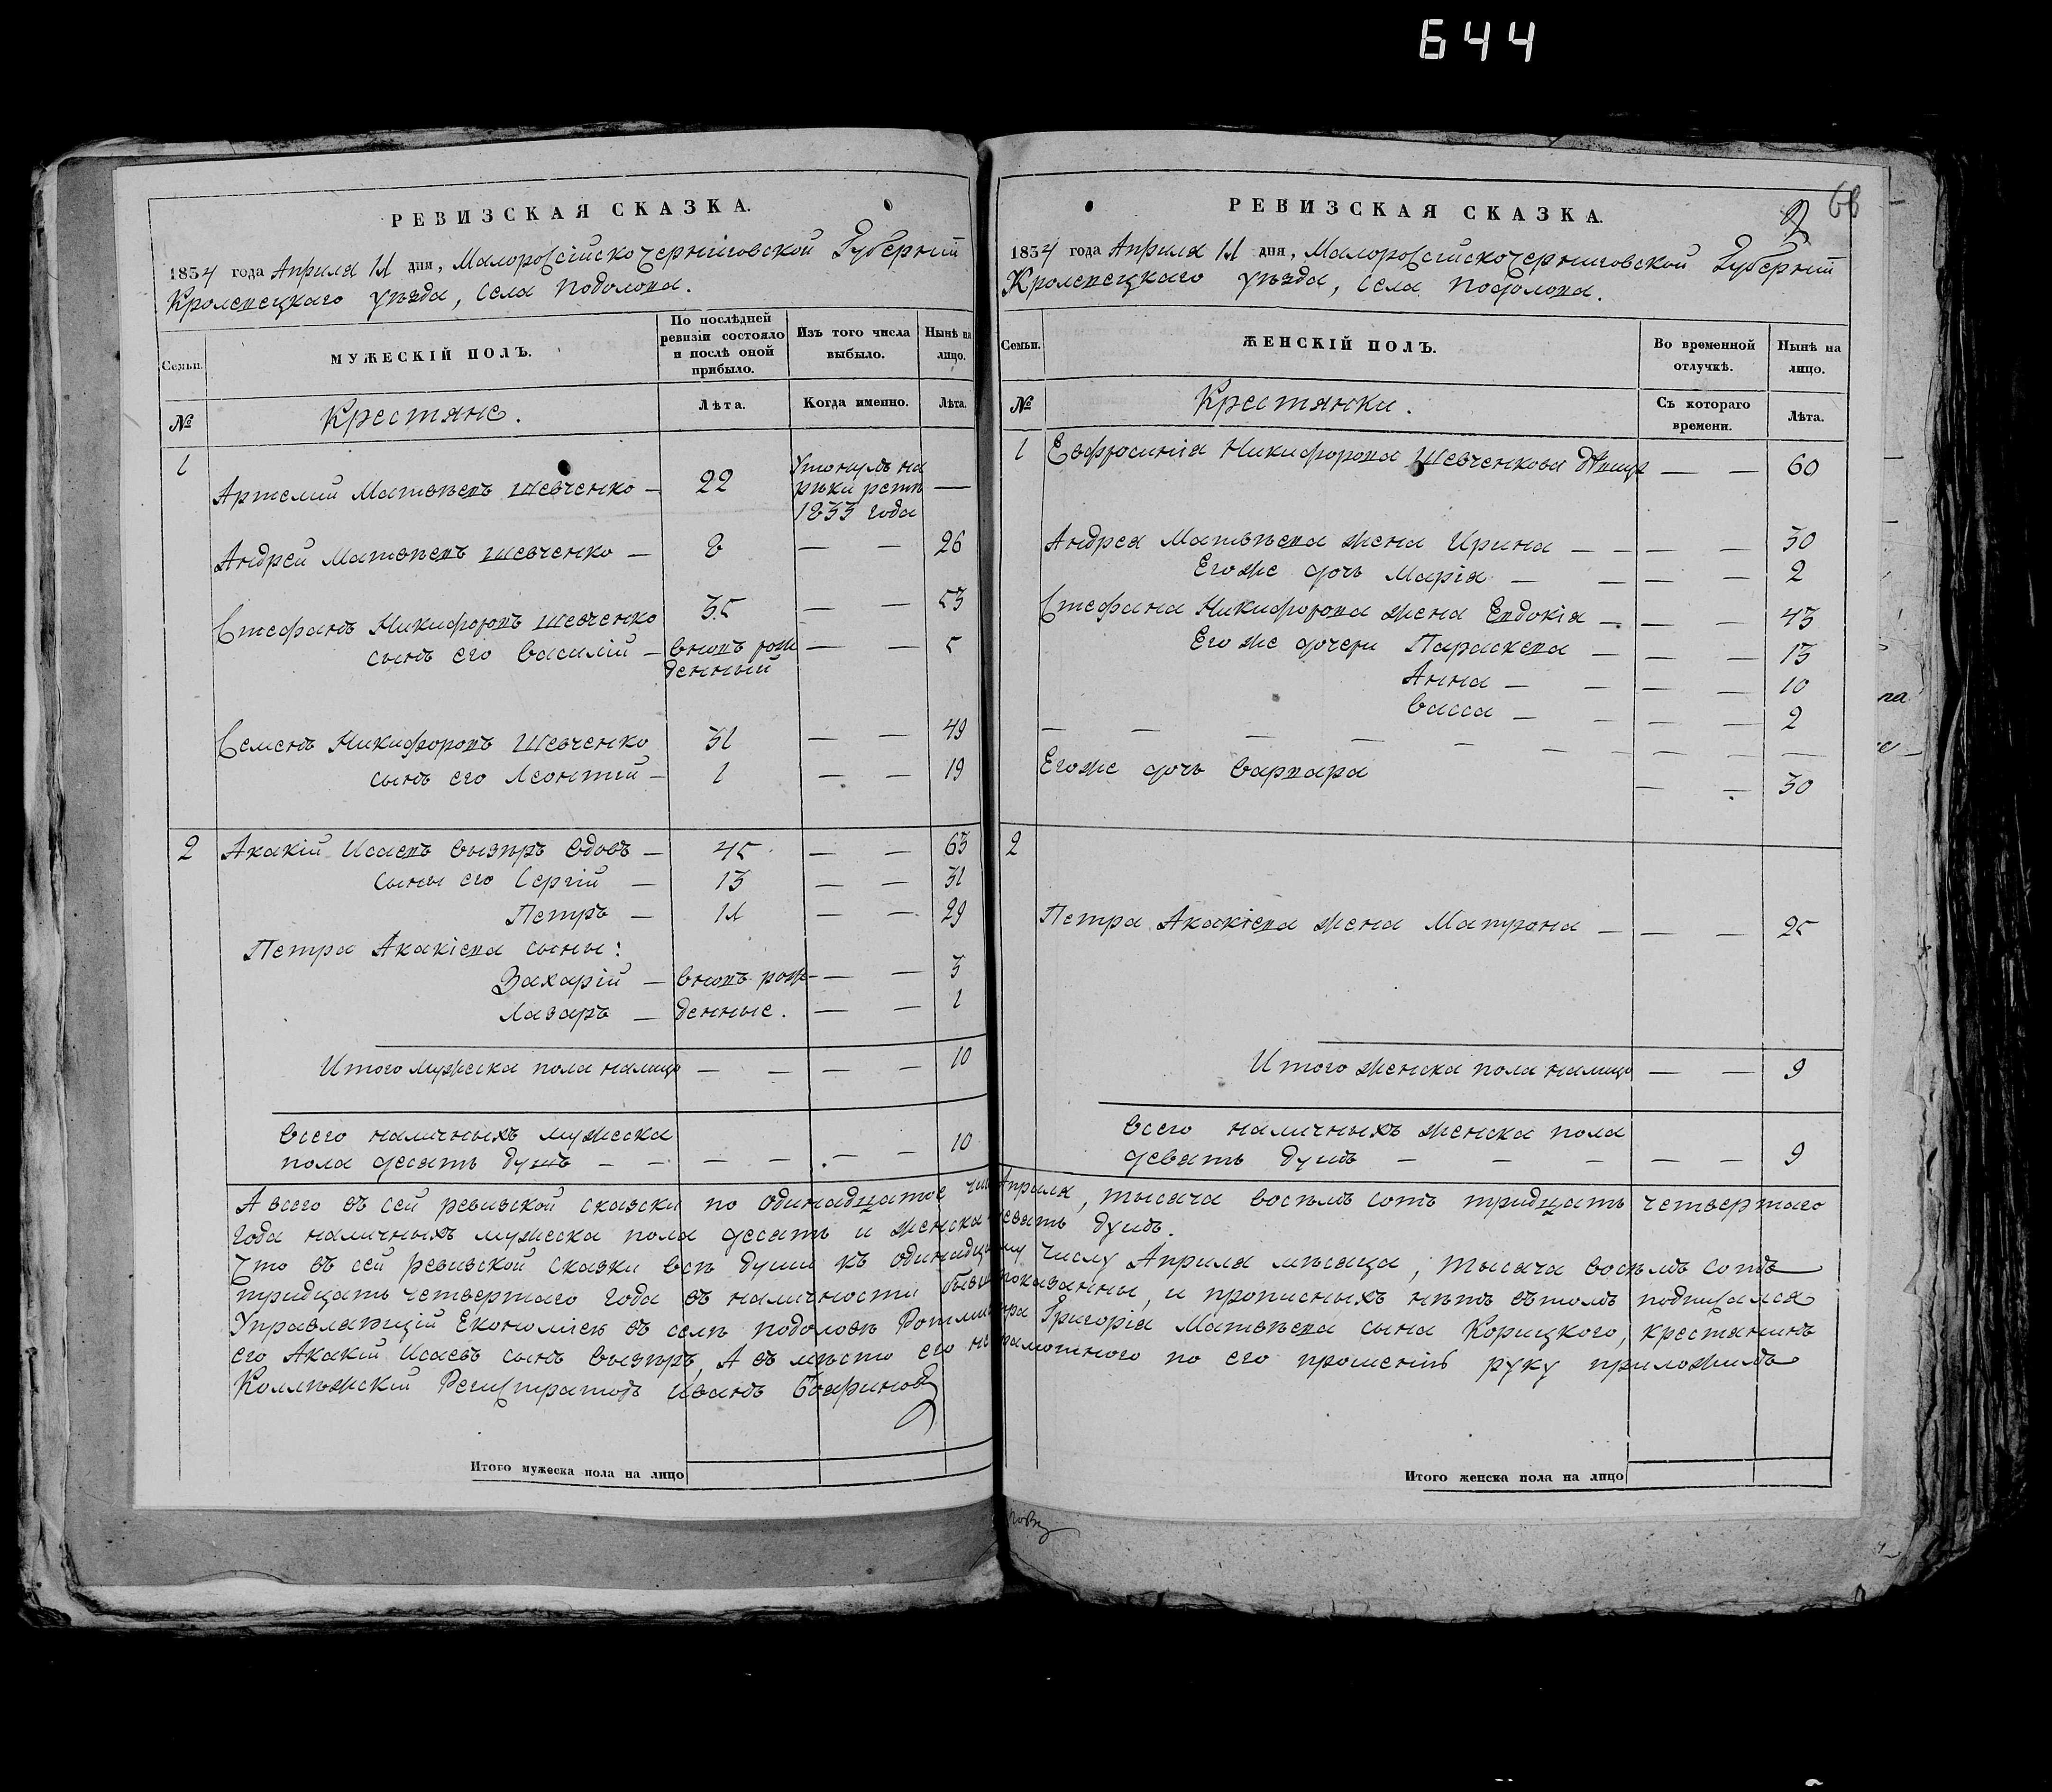 644
РЕВИЗСКАЯ СКАЗКА.
1834 года Апреля 11 дня, Малороссійско Черниговской Губерніи
Кролевецкаго уѣзда, села Подолова.
Семьи.
МУЖЕСКІЙ ПОЛЪ.
По послѣдней ревизіи состояло и послѣ оной прибыло.
Изъ того числа выбыло.
Нынѣ на лицо.
№
Крестяне.
Лѣта.
Когда именно.
Лѣта.
1
Артемий Матвѣевъ Шевченко — 22 Утонулъ на —
рѣки рети
1833 года
Андрей Матвѣевъ Шевченко — 8 — — 26
Стефанъ Никифоровъ Шевченко 35 — — 53
сынъ его Василій — вновь рож — — 5
денный
Семенъ Никифоровъ Шевченко 31 — — 49
сынъ его Леонтій — 1 — — 19
2 Акакій Исаевъ Вызѣръ вдовъ — 45 — — 63
сыны его Сергій — 13 — — 31
Петръ — 11 — — 29
Петра Акакіева сыны:
Захарій — вновь рож — — 3
Лазаръ — денные. — — 1
Итого мужеска пола налицо — — — — 10
Всего наличныхъ мужеска
пола десать душъ — — — — — — 10
РЕВИЗСКАЯ СКАЗКА.
2
68
1834 года Апреля 11 дня, Малороссійско Черниговской Губерніи
Кролевецкаго уѣзда, села Подолова.
Семьи.
ЖЕНСКІЙ ПОЛЪ.
Во временной отлучкѣ.
Нынѣ на лицо.
№
Крестянки.
Съ котораго времени.
Лѣта.
1 Евфросинія Никифорова Шевченкова — — 60
Андрея Матвѣева жена Ирина — — — — 30
Его же дочь Марія — — — — 2
Стефана Никифорова жена Евдокія — — — 43
Его же дочери Параскева — — — 13
Анна — — — — 10
Васса — — — — 2
— — — — — — — — — —
Егоже дочь Варвара — — 30
2
Петра Акакіева жена Матрона — — — 25
Итого женска пола налицо — — 9
Всего наличныхъ женска пола
девать душъ — — — — — 9
А всего въ сей ревизской сказки по одинадцатое Апреля, тысяча восѣмъ сотъ тридцать четвертаго
года наличныхъ мужеска пола десать и женска девать душъ.
Что въ сей ревизской сказки всѣ души къ одинадцатому числу Апреля мѣсаца, тысяча восѣмъ сотъ
тридцать четвертаго года въ наличности бывши показанны, и прописныхъ нѣтъ вътомъ подписался
Управляющій Економіею въ селѣ Подоловѣ Ротмистра Григорія Матвѣева сына Корицкого, крестянинъ
его Акакій Исаевъ сынъ Вызѣръ, А въ мѣсто его неграмотного по его прошенію руку приложилъ
Коллѣжскій Регистраторъ Иванъ
Итого мужеска пола на лицо
Итого женска пола на лицо